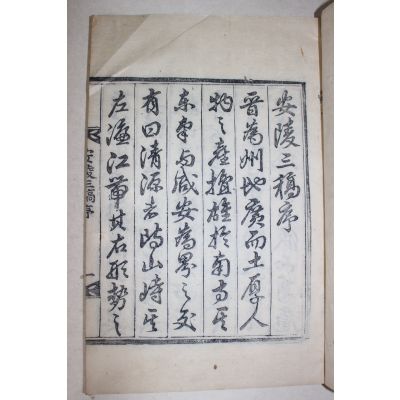 安陵三稿序
晉爲州地廣而土厚人
物之產擅雄於南方其
東率與咸安爲界之交
有曰清源者防山峙其
左濂江帶其右形勢之
安陵三稿序
一